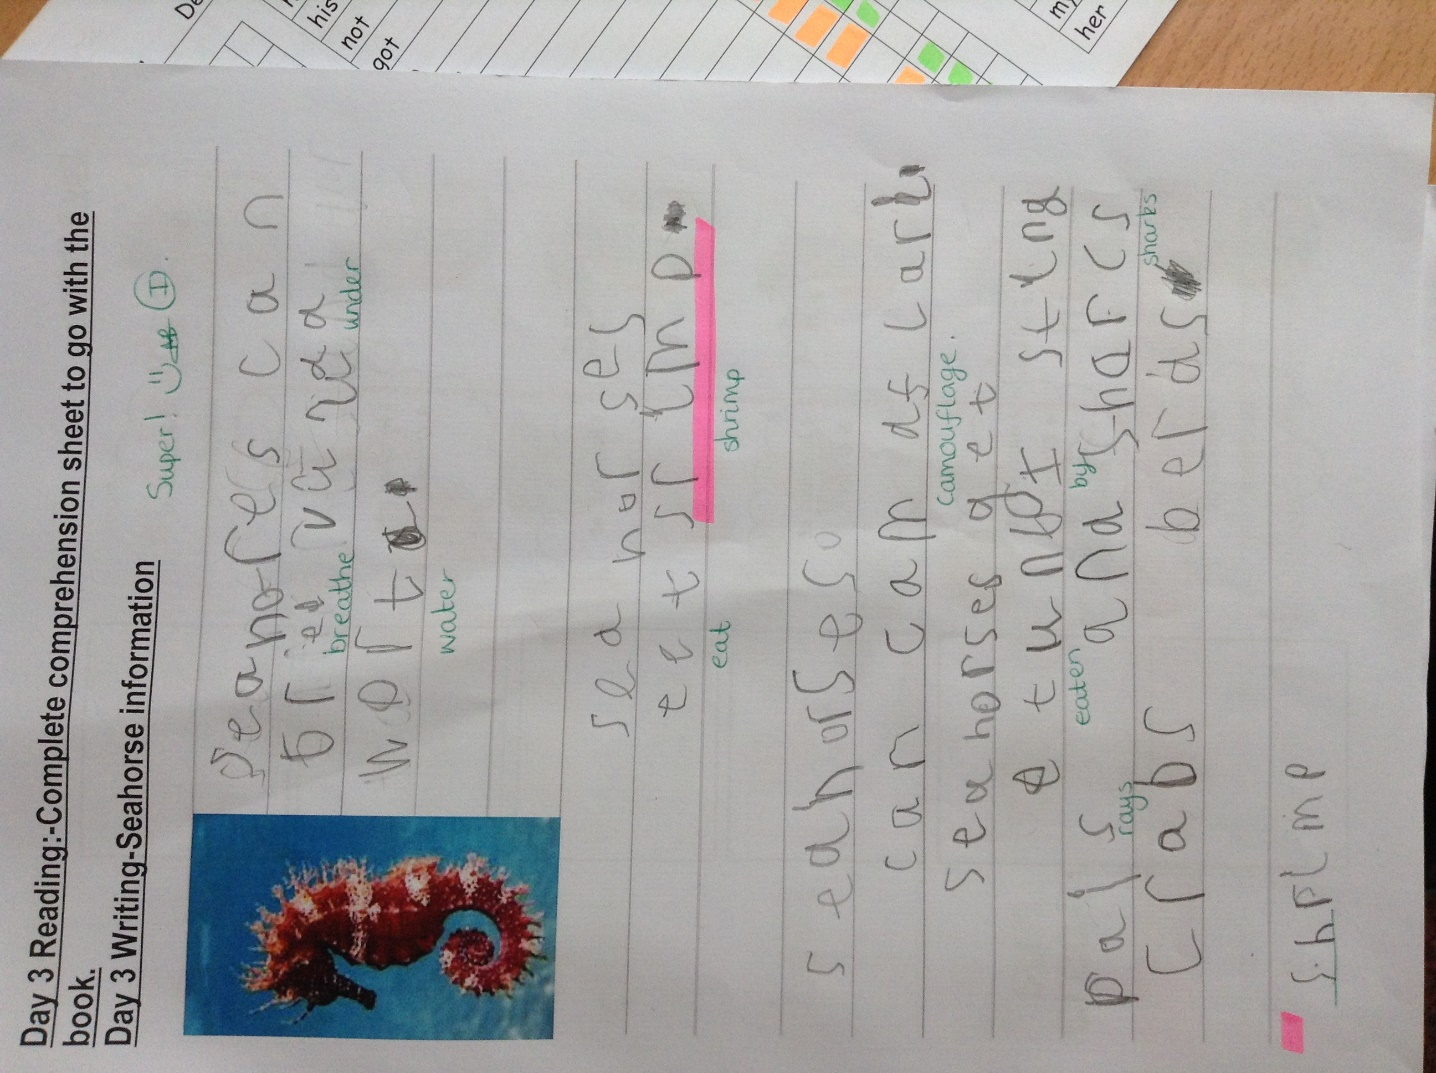 De
his
not
got
my
her
Day 3 Reading:-Complete comprehension sheet to go with the
book.
Day 3 Writing-Seahorse information
Super! I
can
breathe under
water
seahorses
eet srimp.
eat shrimp
seahorses
can camaflark.
camouflage.
Seahorses get
sting
eaten by
rays and sharcs
sharks
crabs berds.
shrimp